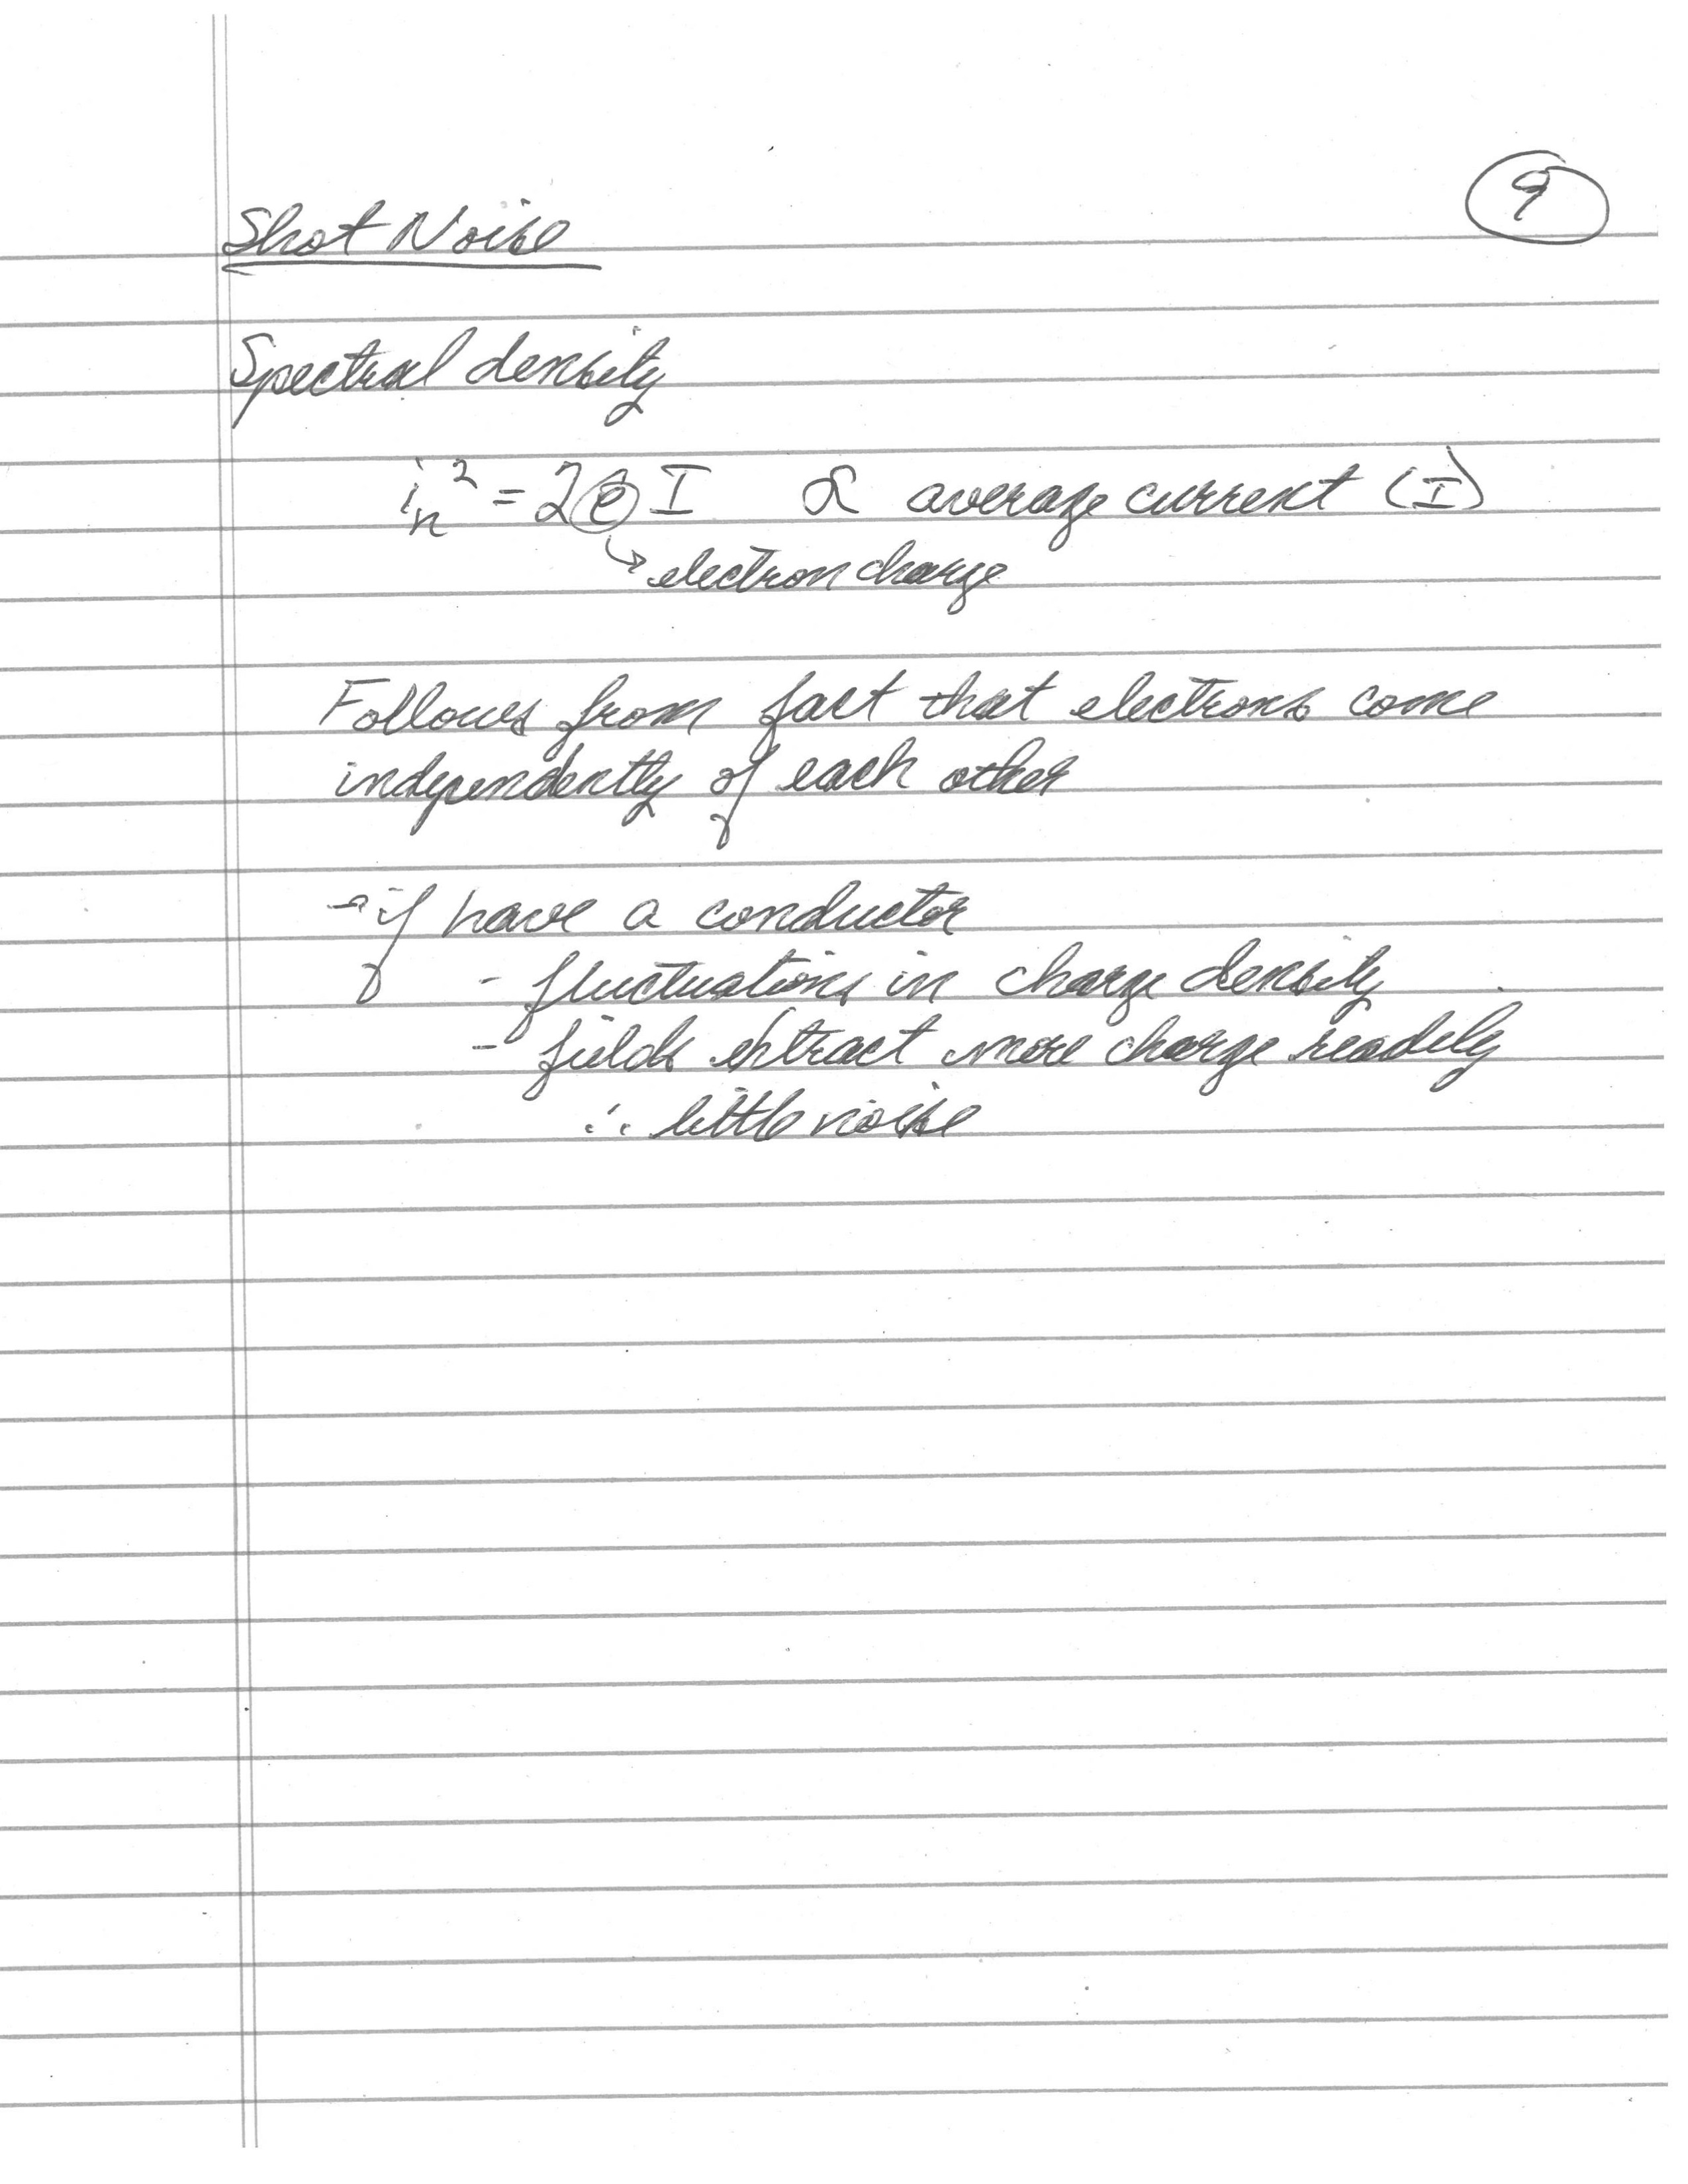 9
Shot Noise
Spectral density
i_n^2 = 2eI ∝ average current (I)
↳ electron charge
Follows from fact that electrons come
independently of each other
→ if have a conductor
- fluctuations in charge density
- fields extract more charge readily
∴ little noise